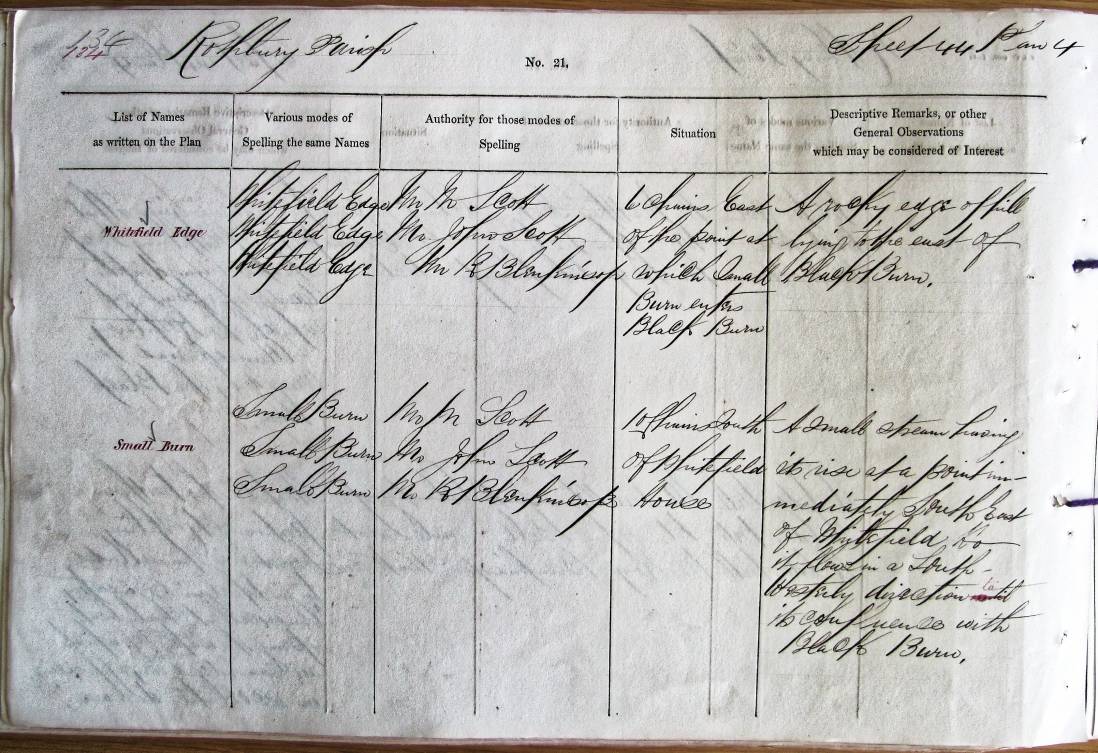 134
Rothbury Parish
No. 21.
Sheet 44 Plan 4
List of Names
as written on the Plan
Various modes of
Spelling the same Names
Authority for those modes of
Spelling
Situation
Descriptive Remarks, or other
General Observations
which may be considered of Interest
Whitefield Edge
Whitefield Edge
Whitefield Edge
Whitefield Edge
Mr M Scott
Mr John Scott
Mr R Blenkinsop
6 Chains East
of the point at
which Small
Burn enters
Black Burn
A rocky edge of hill
lying to the east of
Black Burn.
Small Burn
Small Burn
Small Burn
Small Burn
Mr M Scott
Mr John Scott
Mr R Blenkinsop
10 Chains South
of Whitefield
House
A small stream having
its rise at a point im-
mediately South East
of Whitefield Ho
it flows in a South-
Westerly direction to
its confluence with
Black Burn.